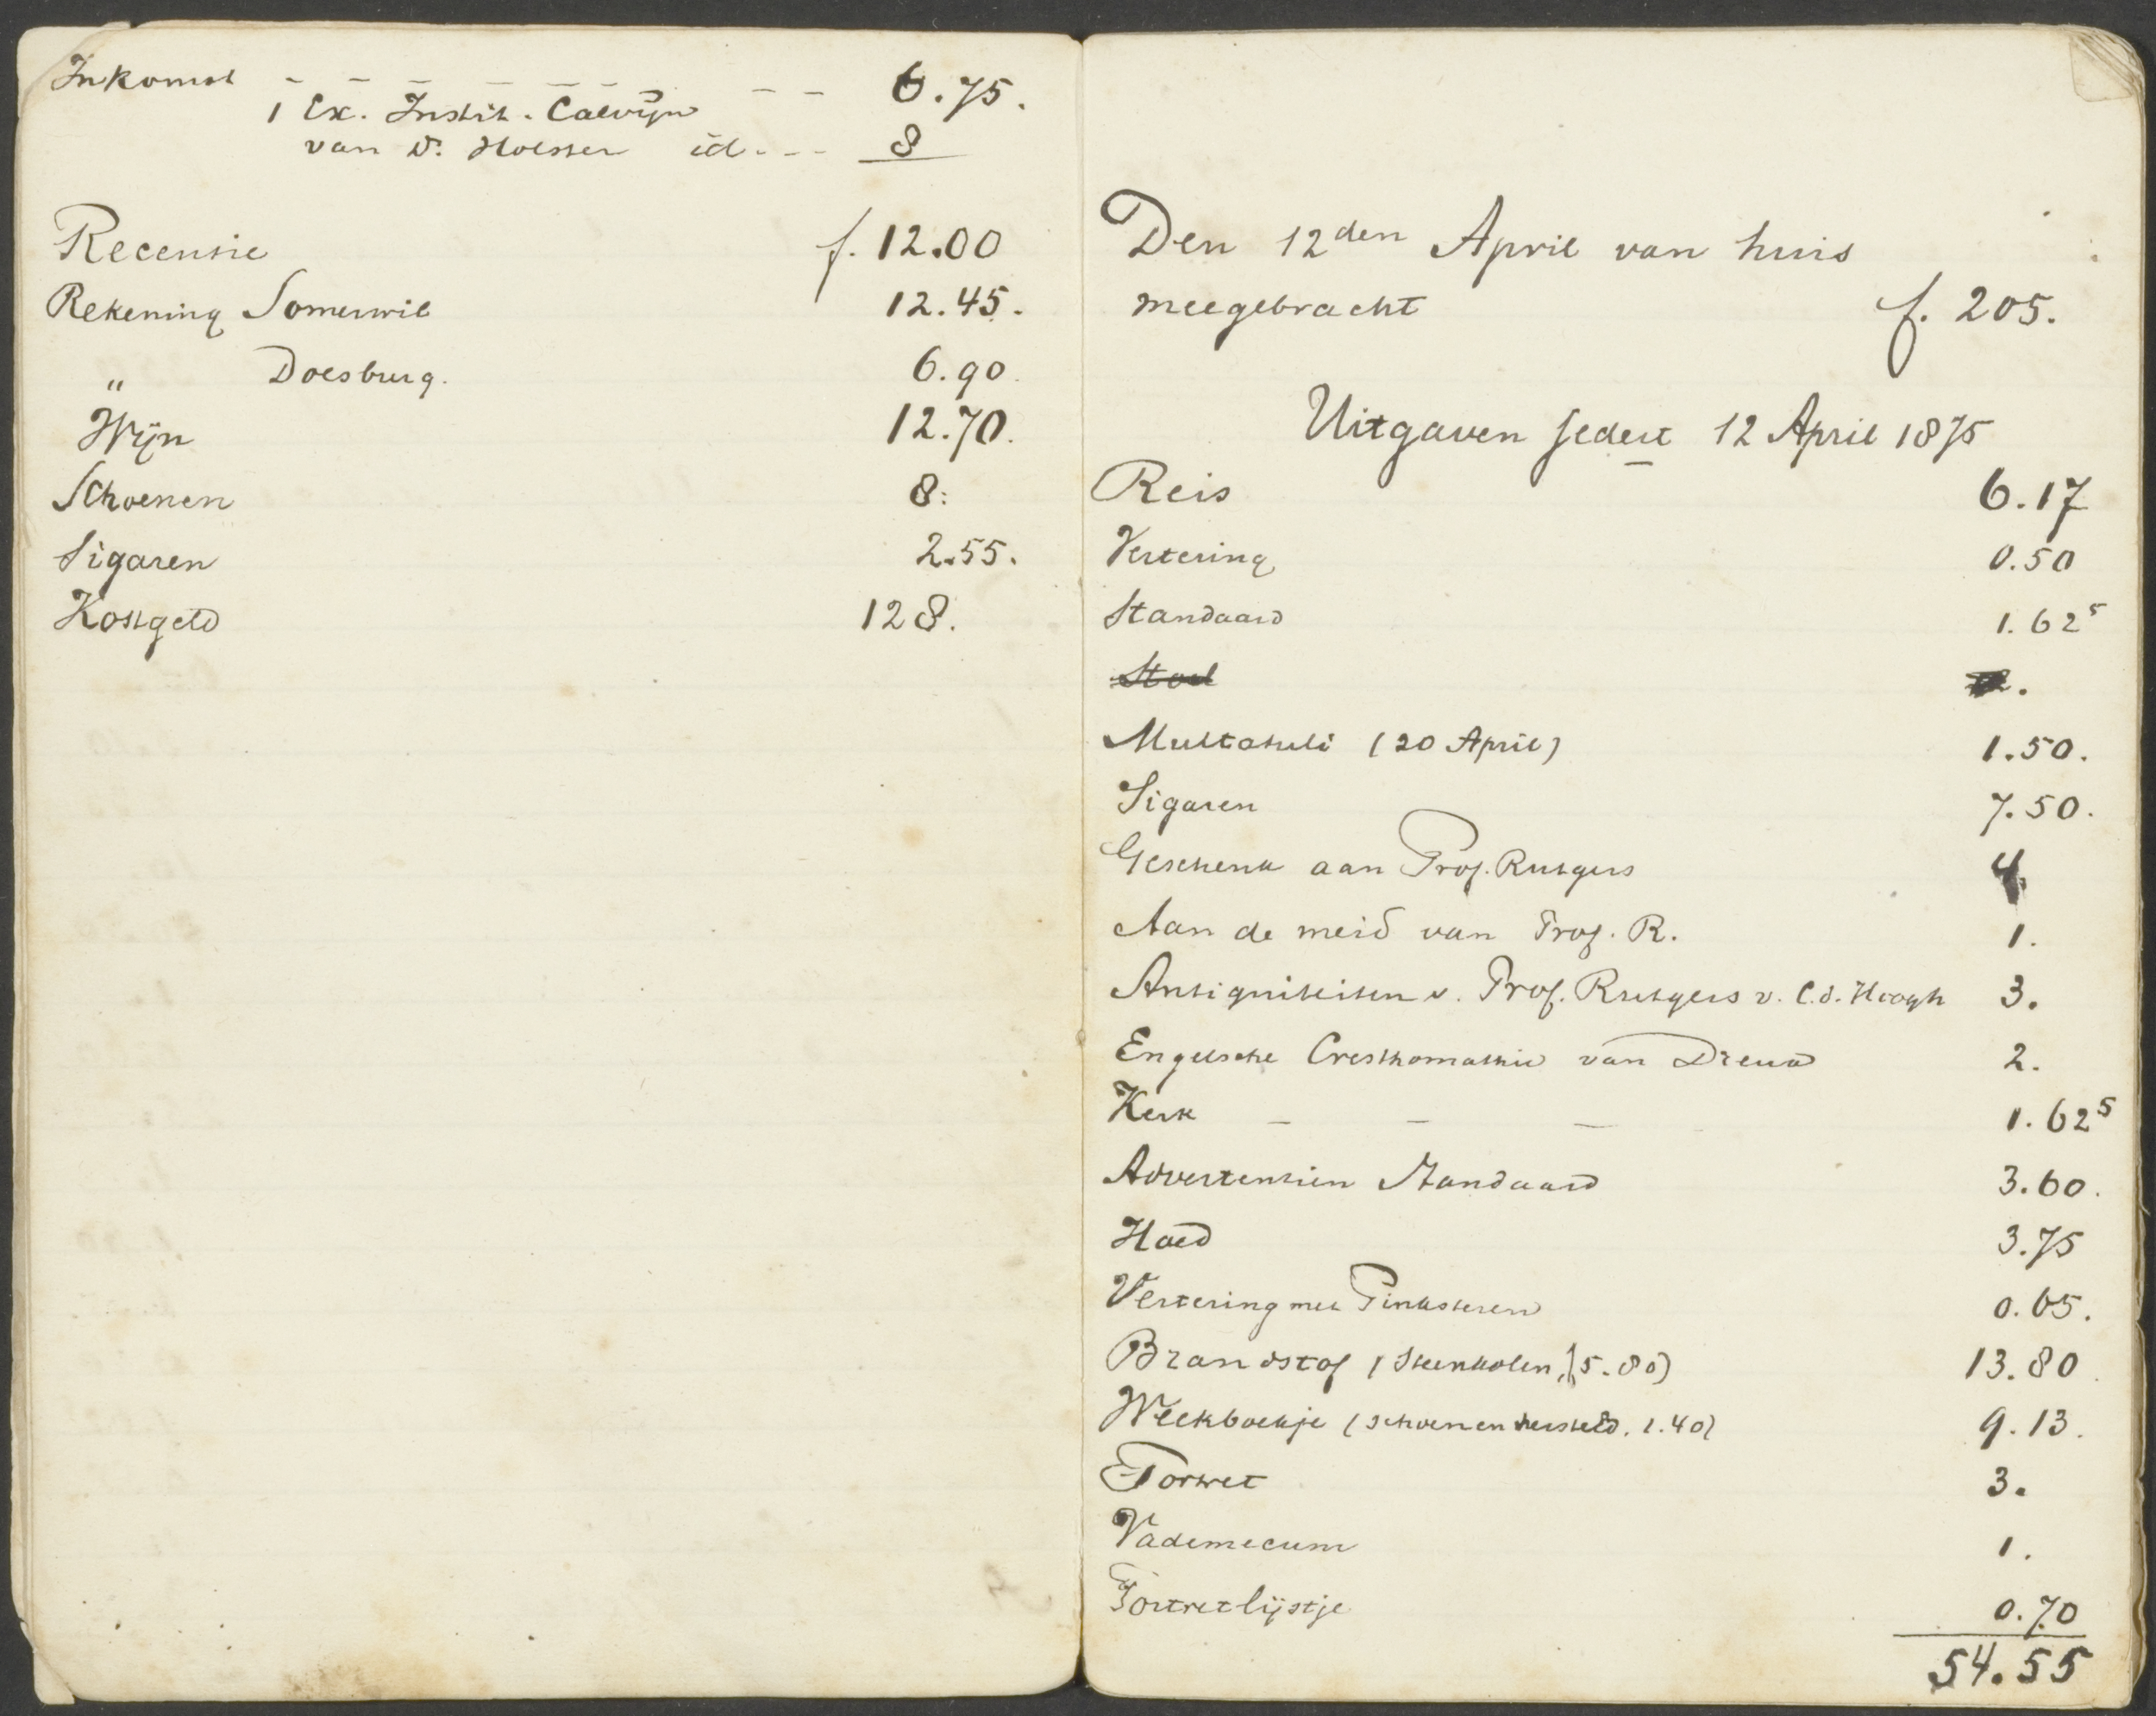 Inkomst - - - - - - - - 6.75.
1 Ex. Instit. Calvijn
van D. Holster id. - - 8
Recensie f. 12.00
Rekening Somerwil 12.45.
" Doesburg. 6.90.
Wijn 12.70.
Schoenen 8:
Sigaren 2.55.
Kostgeld 128.
Den 12den April van huis
meegebracht f. 205.
Uitgaven sedert 12 April 1875
Reis 6.17
Vertering 0.50
Standaard 1.62⁵
Stoel
Multatuli (20 April) 1.50.
Sigaren 7.50.
Geschenk aan Prof. Rutgers 4.
Aan de meid van Prof. R. 1.
Antiquiteiten v. Prof. Rutgers v. C. d. Hoogh 3.
Engelsche Cresthomathie van 2.
Kerk - - - 1.62⁵
Advertentien Standaard 3.60.
Hoed 3.75
Vertering met Pinksteren 0.65.
Brandstof (Steenkolen, 5.80) 13.80.
Weekboekje (schoenen hersteld. 1.40) 9.13.
Portret 3.
Vademecum 1.
Portretlijstje 0.70
54.55